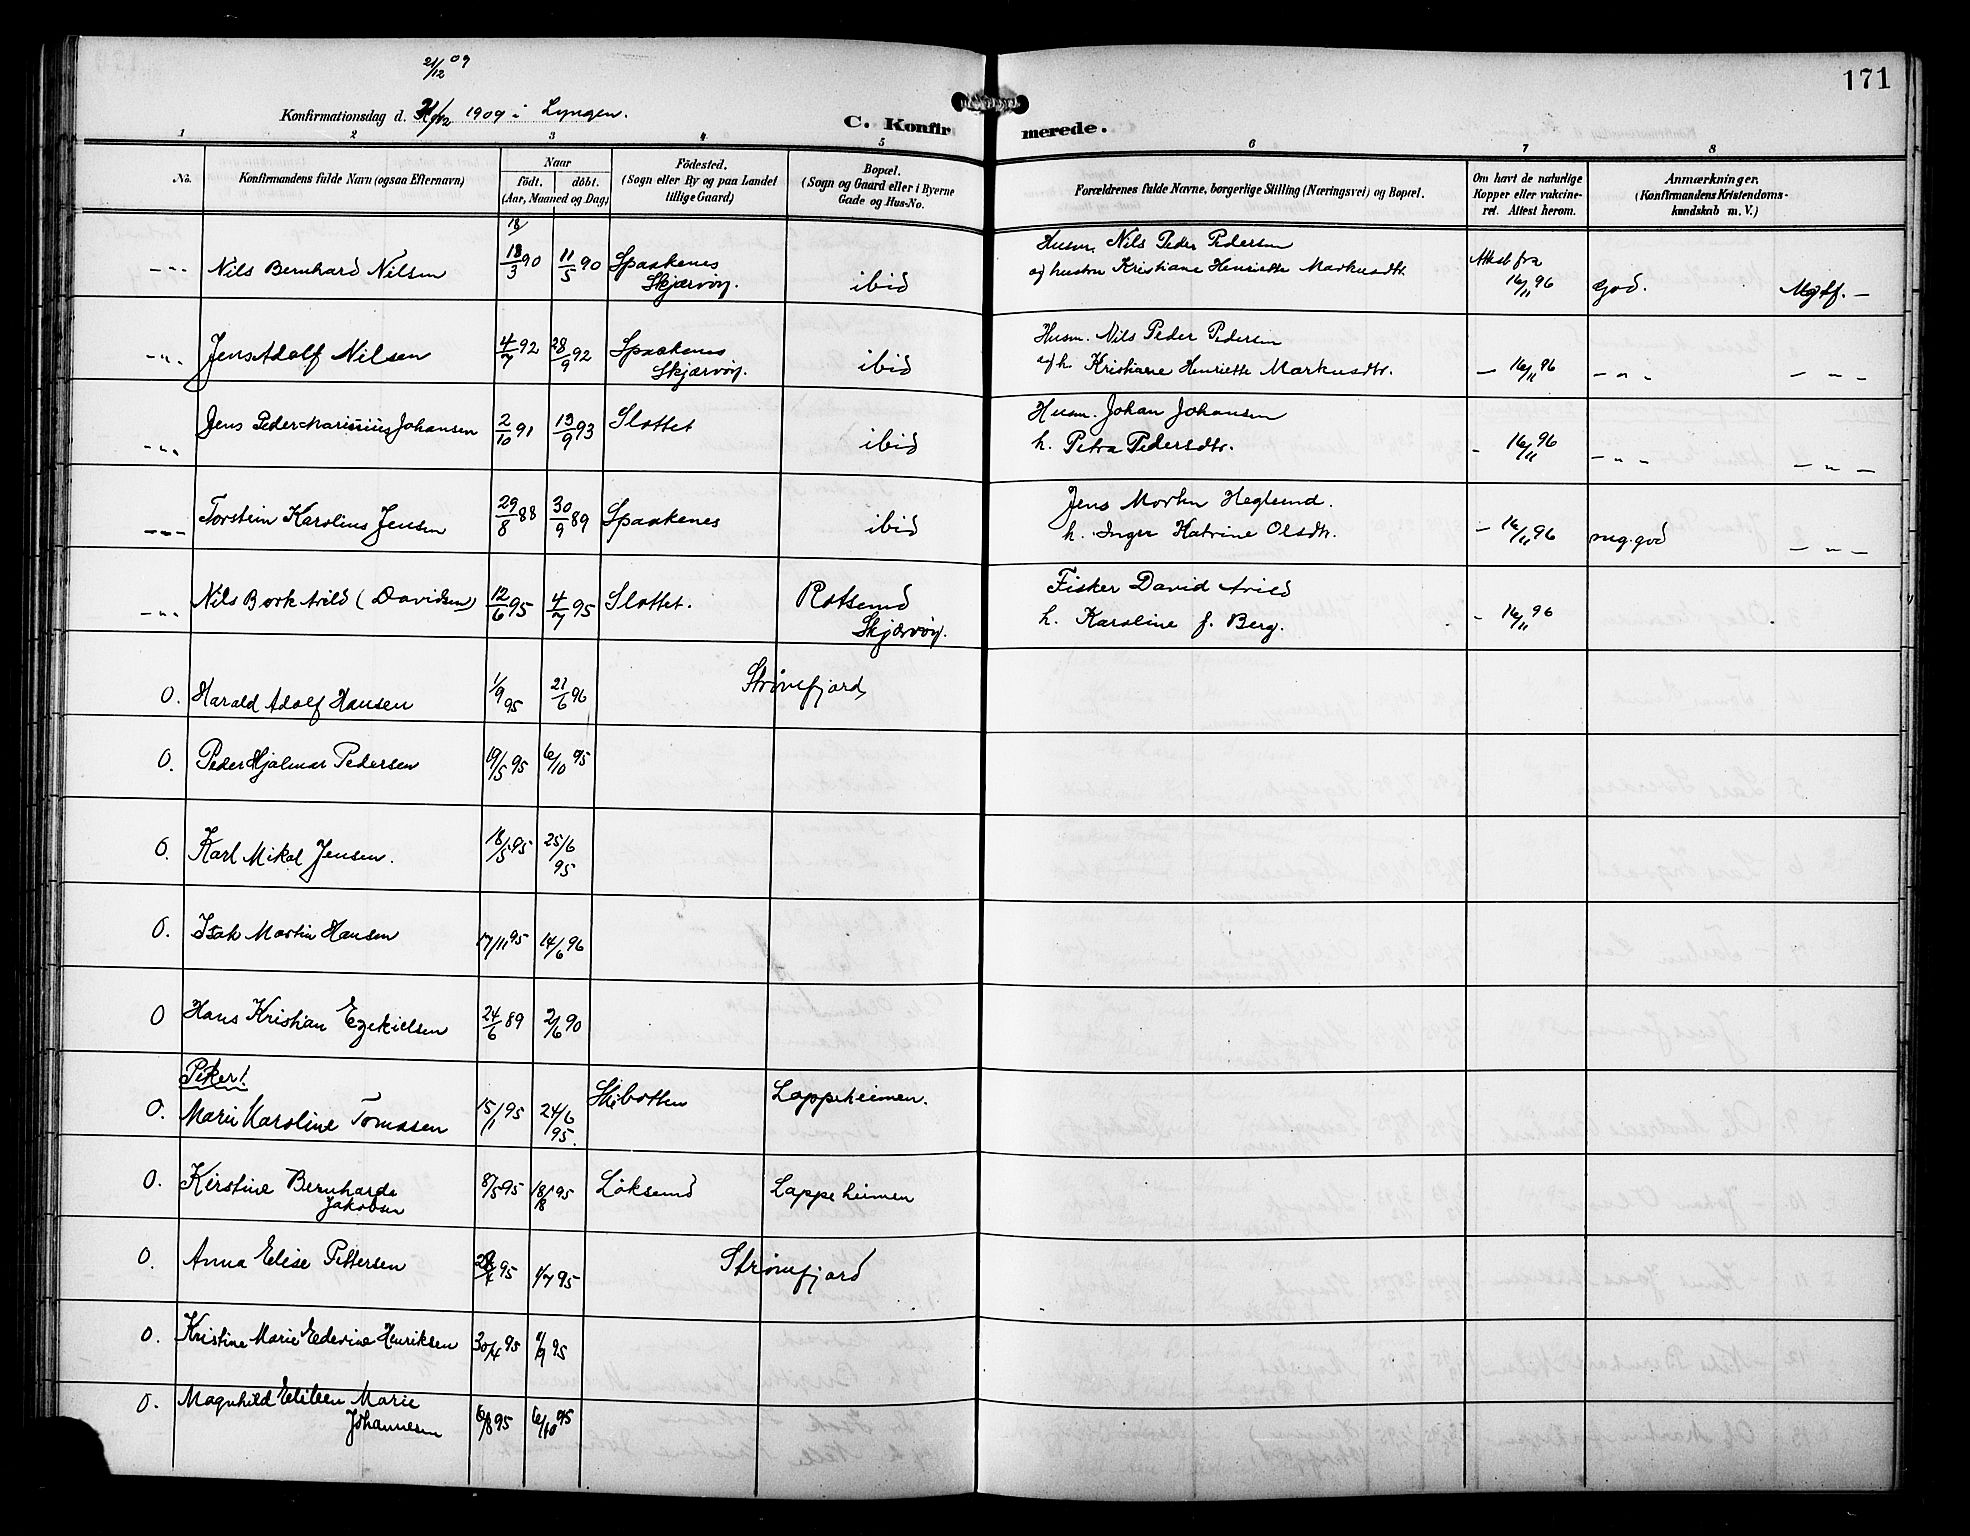 171
21/12 09
Konfirmationsdag d. 21/12 1909 i Lyngen.
C. Konfirmerede.
1 2 3 4 5 6 7 8
No.
Konfirmandens fulde Navn (ogsaa Efternavn)
Naar
födt. döbt.
(Aar, Maaned og Dag)
Födested.
(Sogn eller By og paa Landet
tillige Gaard)
Bopæl.
(Sogn og Gaard eller i Byerne
Gade og Hus-No.
Forældrenes fulde Navne, borgerlige Stilling (Næringsvei) og Bopæl.
Om havt de naturlige
Kopper eller vakcine-
ret. Attest herom.
Anmærkninger,
(Konfirmandens Kristendoms-
kundskab m. V.)
18/
-"- Nils Bernhard Nilsen 18/3 90 11/5 90 Spaakenes Skjærvöy. ibid Husm. Nils Peder Pedersen
og hustru Kristiane Henriette Markusdtr. Attest fra 16/11 96 God.
-"- Jens Adolf Nilsen 4/7 92 28/9 92 Spaakenes Skjærvöy. ibid Husm. Nils Peder Pedersen
og h. Kristiane Henriette Markusdtr. - 16/11 96 - " - - " -
-"- Jens Peder Marinius Johansen 2/10 91 13/9 93 Slottet ibid Husm. Johan Johansen
h. Petra Pedersdtr. - 16/11 96 - " - - " -
-"- Torstein Karolius Jensen 29/8 88 30/9 89 Spaakenes ibid Jens Morten Heglund.
h. Inger Katrine Olsdtr. - 16/11 96 meg. god - " -
-"- Nils Bork Arild (Davidsen) 12/6 95 4/7 95 Slottet. Rotsund Skjærvöy. Fisker David Arild
h. Karoline f. Berg. - 16/11 96
O. Harald Adolf Hansen 1/9 95 21/6 96 Strövefjord
O. Peder Hjalmar Pedersen 19/5 95 6/10 95
O. Karl Mikal Jensen. 18/5 95 25/6 95
O. Isak Martin Hansen 17/11 95 14/6 96
O Hans Kristian Ezekielsen 24/6 89 2/6 90
Piker!
O. Marie Karoline Tomasen 15/1 95 24/6 95. Skibotten Lappeheimen.
O. Kirstine Bernharda Jakobsen 8/5 95 18/8 95 Löksund Lappeheimen
O. Anna Elise Pettersen 28/4 95 1/7 95 Strövefjord
O. Kristine Marie Edevine Henriksen 30/4 95 1/9 95
O. Magnhild Elileen Marie Johannesen 6/8 95 6/10 95